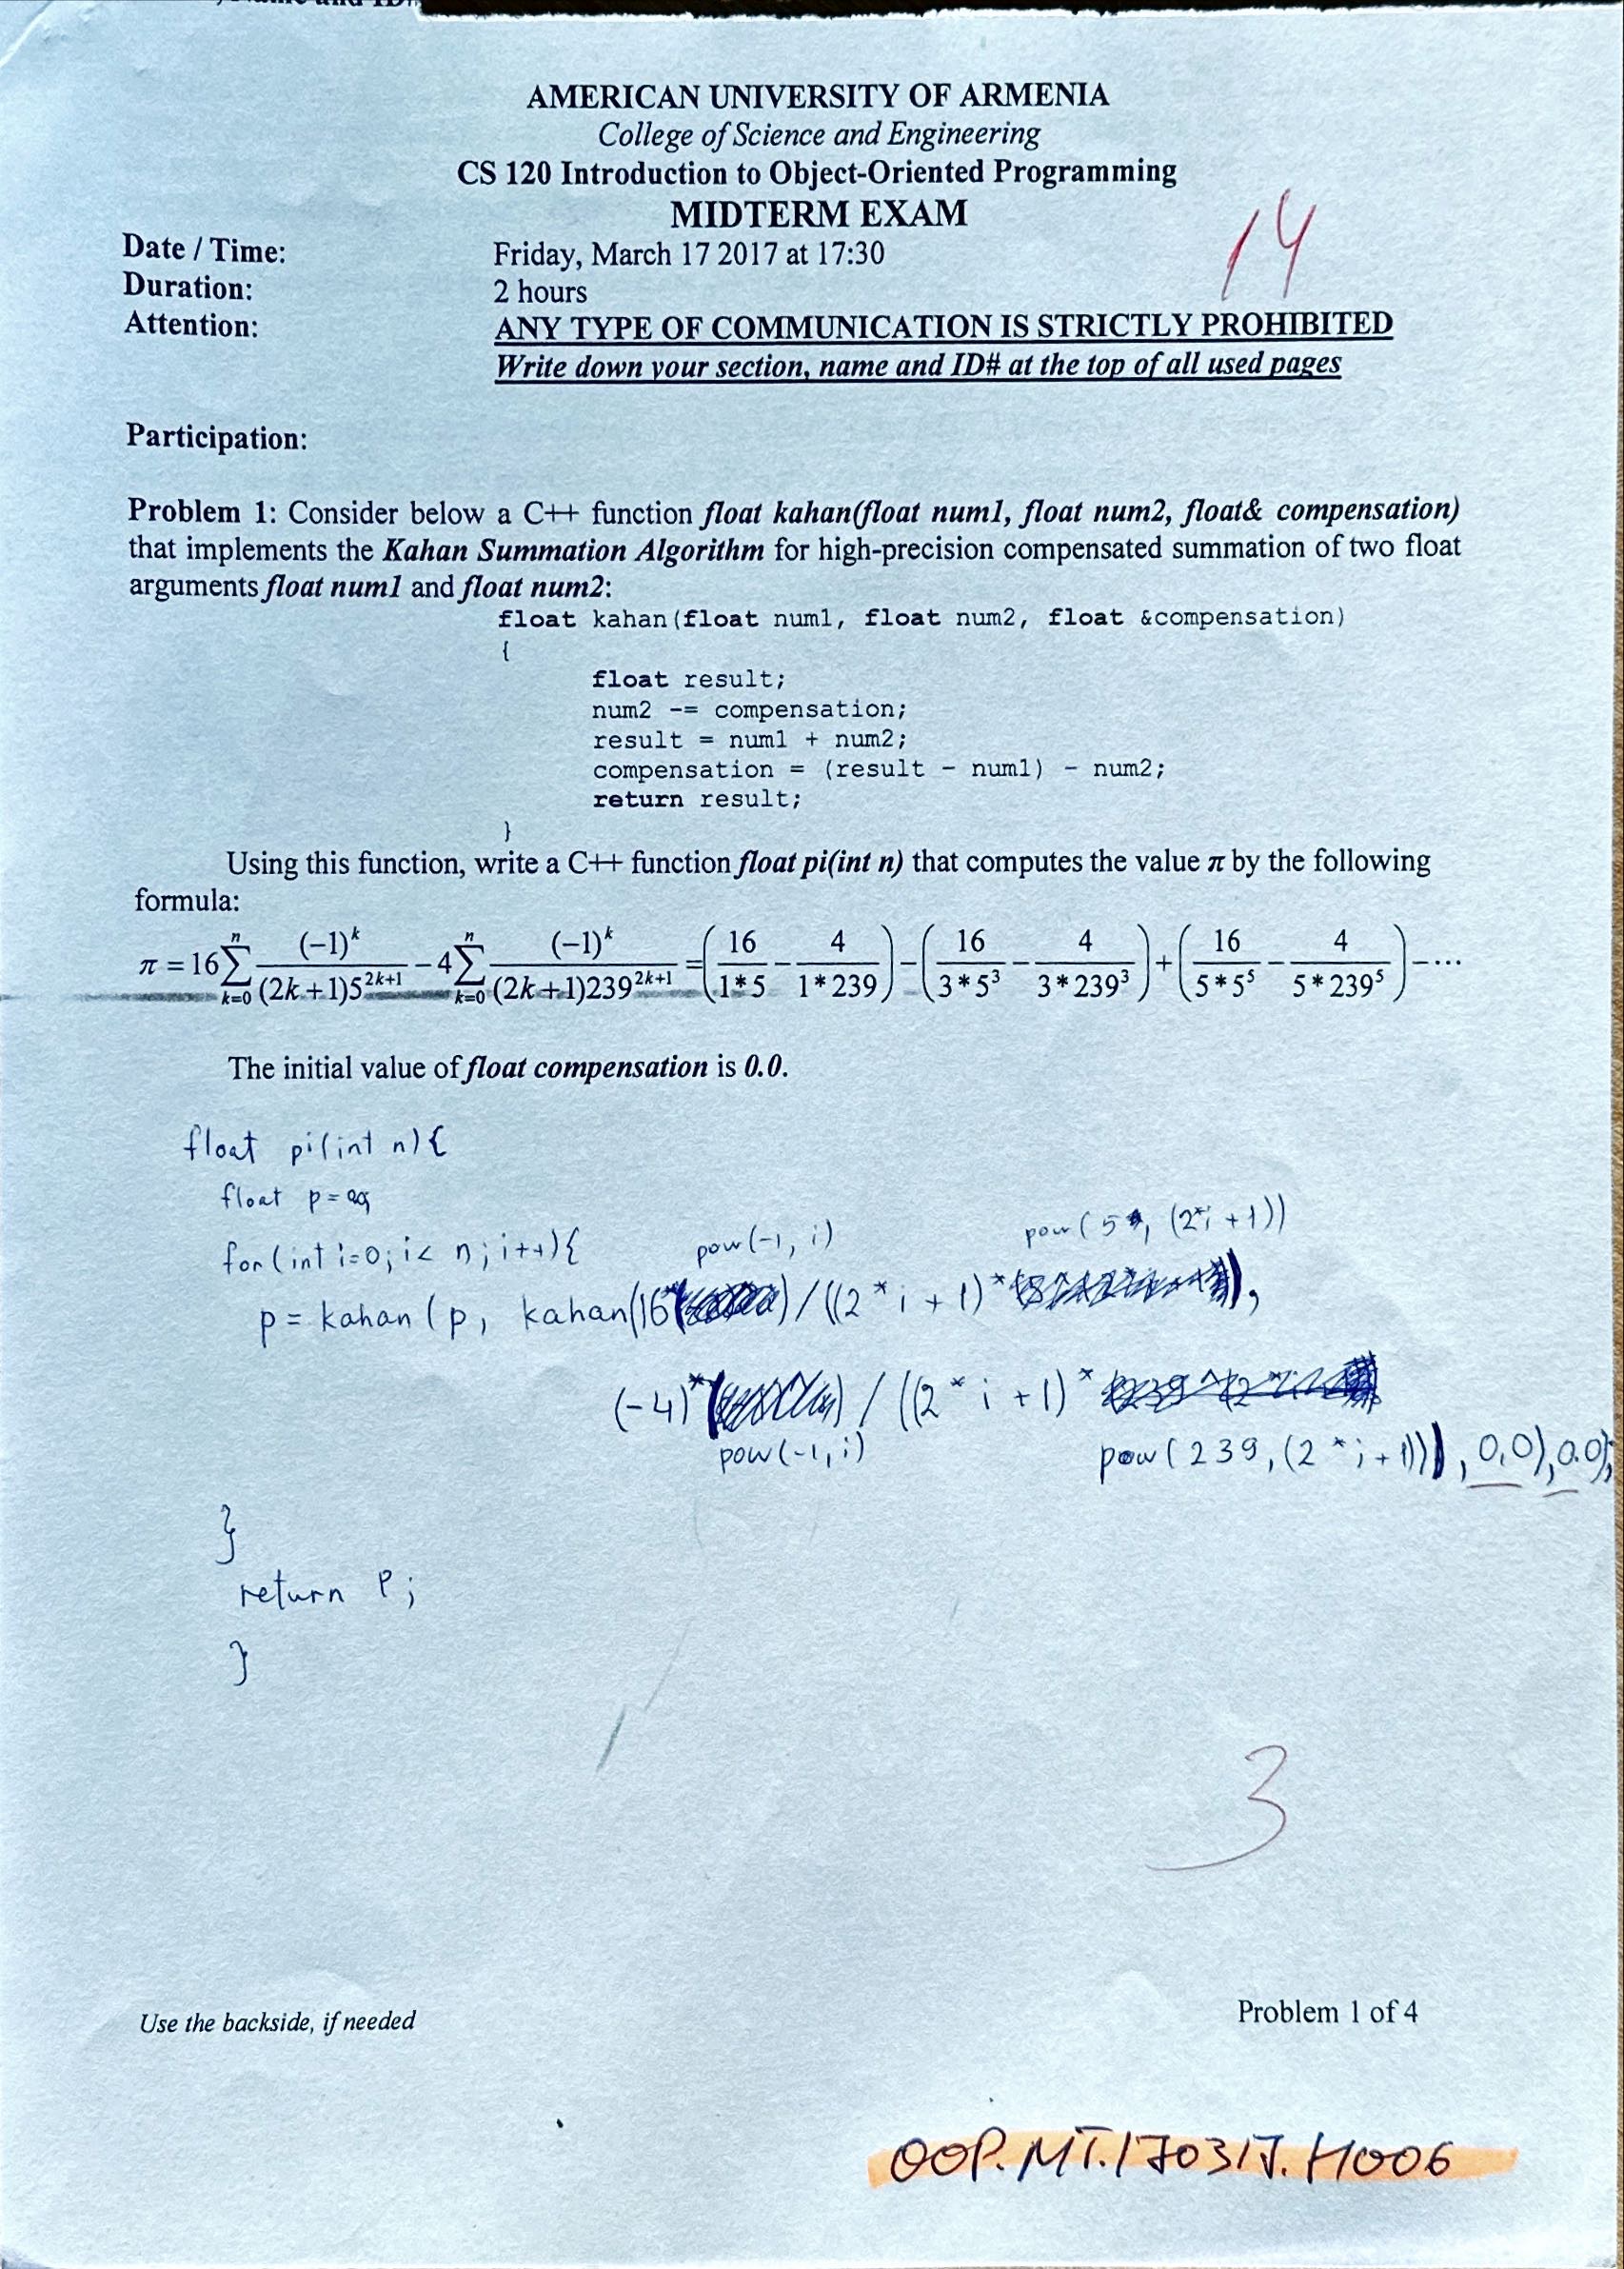 AMERICAN UNIVERSITY OF ARMENIA
College of Science and Engineering
CS 120 Introduction to Object-Oriented Programming
MIDTERM EXAM
14
Date / Time: Friday, March 17 2017 at 17:30
Duration: 2 hours
Attention: ANY TYPE OF COMMUNICATION IS STRICTLY PROHIBITED
Write down your section, name and ID# at the top of all used pages
Participation:
Problem 1: Consider below a C++ function float kahan(float num1, float num2, float& compensation)
that implements the Kahan Summation Algorithm for high-precision compensated summation of two float
arguments float num1 and float num2:
float kahan(float num1, float num2, float &compensation)
{
float result;
num2 -= compensation;
result = num1 + num2;
compensation = (result - num1) - num2;
return result;
}
Using this function, write a C++ function float pi(int n) that computes the value π by the following
formula:
π = 16 ∑_{k=0}^{n} (-1)^k / ((2k+1)5^{2k+1}) - 4 ∑_{k=0}^{n} (-1)^k / ((2k+1)239^{2k+1}) = (16/(1*5) - 4/(1*239)) - (16/(3*5^3) - 4/(3*239^3)) + (16/(5*5^5) - 4/(5*239^5)) - ...
The initial value of float compensation is 0.0.
float pi(int n){
float p =
for(int i=0; i< n; i++){
pow(-1, i) pow(5, (2*i +1))
p = kahan(p, kahan(16*) / ((2*i + 1)*),
(-4)*) / ((2*i +1)*
pow(-1, i) pow(239, (2*i+1))), 0.0), 0.0);
}
return p;
}
3
Use the backside, if needed
Problem 1 of 4
OOP.MT.170317.H006